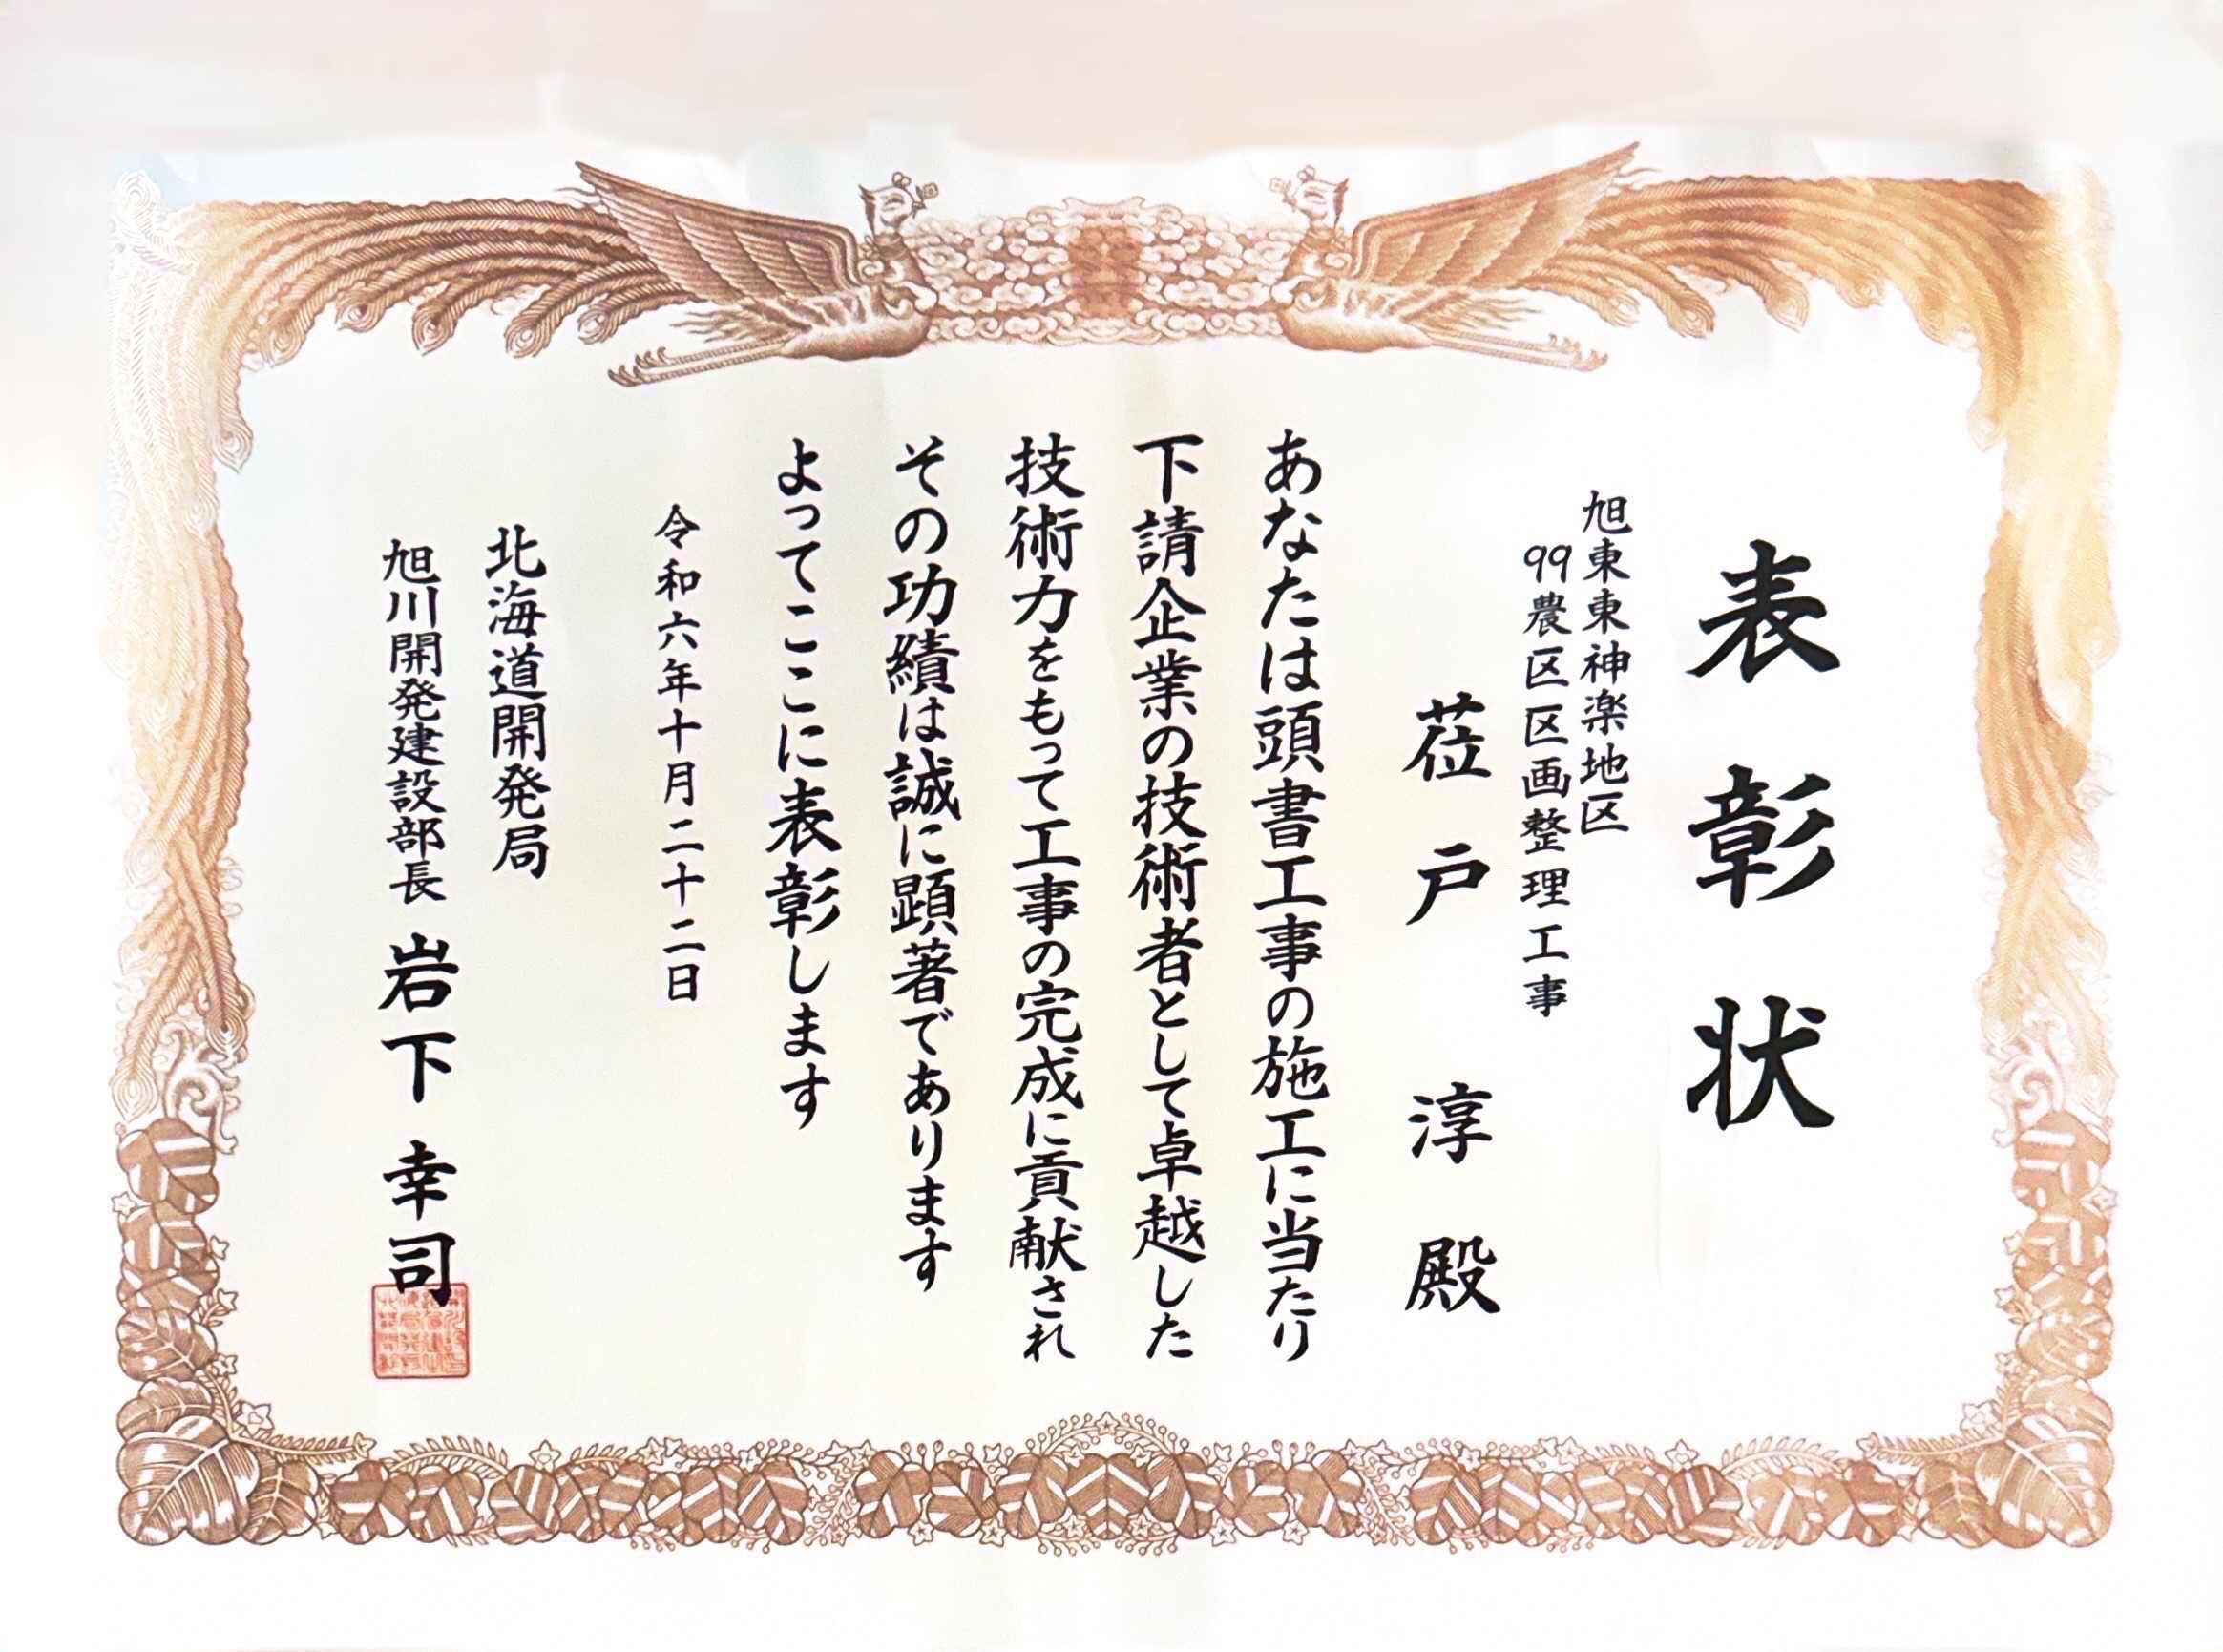 表彰状
旭東東神楽地区
99農区区画整理工事
莅戸 淳 殿
あなたは頭書工事の施工に当たり
下請企業の技術者として卓越した
技術力をもって工事の完成に貢献され
その功績は誠に顕著であります
よってここに表彰します
令和六年十月二十二日
北海道開発局
旭川開発建設部長 岩下幸司